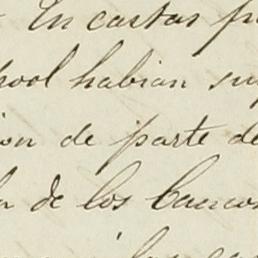 En cartas p
pool habian su
ion de parte de
de los bancos